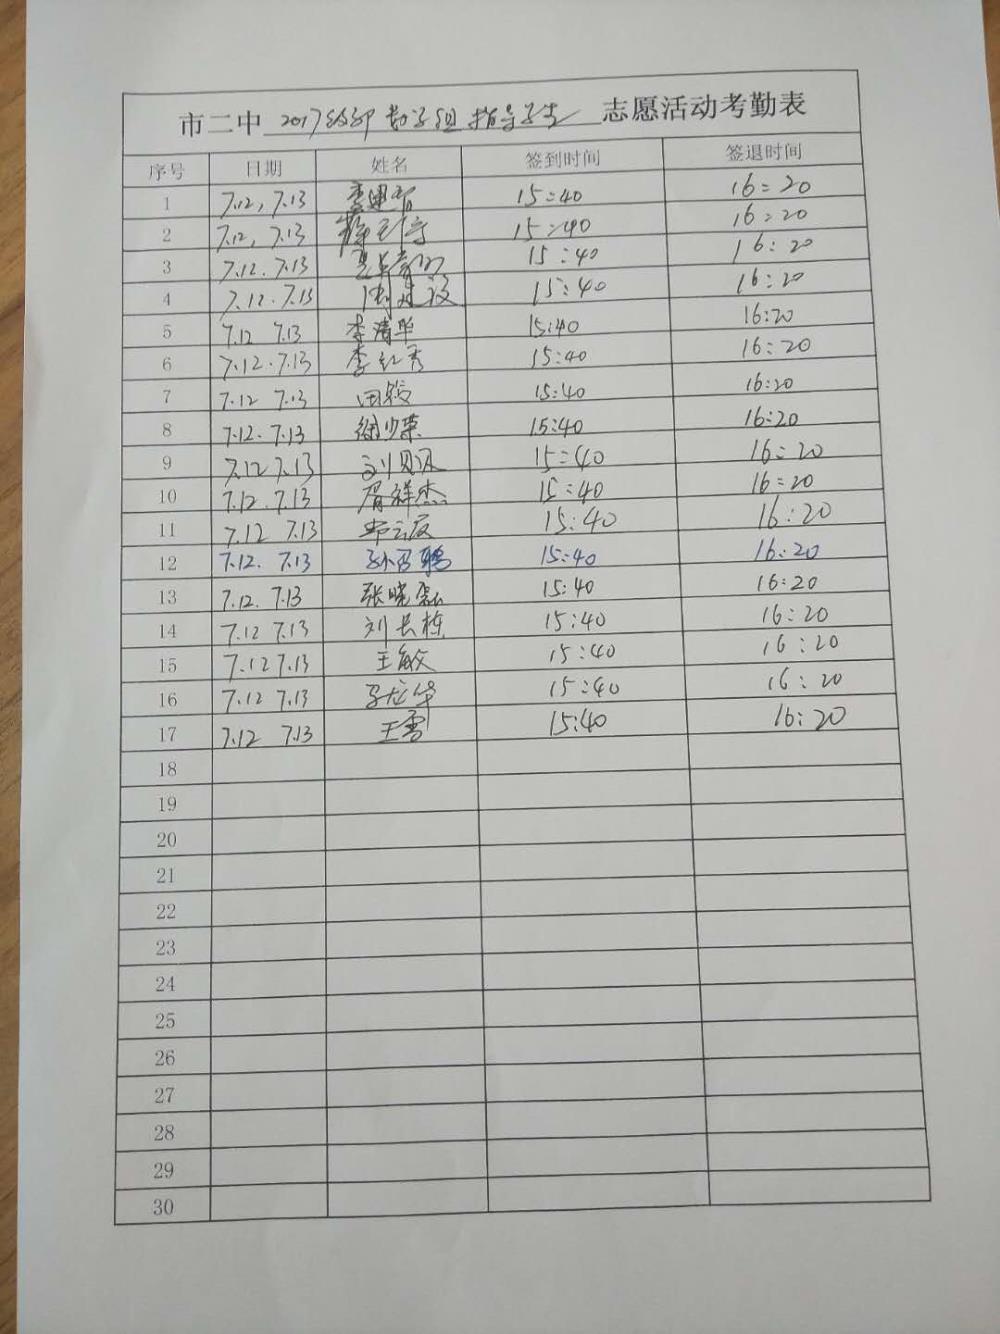 市二中 2017级部 数学组 指导学生 志愿活动考勤表
序号 日期 姓名 签到时间 签退时间
1 7.12, 7.13 15:40 16:20
2 7.12, 7.13 15:40 16:20
3 7.12. 7.13 15:40 16:20
4 7.12. 7.13 周建设 15:40 16:20
5 7.12 7.13 李清华 15:40 16:20
6 7.12. 7.13 李红秀 15:40 16:20
7 7.12 7.13 田毅 15:40 16:20
8 7.12. 7.13 徐少荣 15:40 16:20
9 7.12 7.13 15:40 16:20
10 7.12. 7.13 胥祥杰 15:40 16:20
11 7.12 7.13 15:40 16:20
12 7.12. 7.13 15:40 16:20
13 7.12. 7.13 张晓磊 15:40 16:20
14 7.12 7.13 刘长栋 15:40 16:20
15 7.12 7.13 王敏 15:40 16:20
16 7.12 7.13 15:40 16:20
17 7.12 7.13 王雪 15:40 16:20
18
19
20
21
22
23
24
25
26
27
28
29
30